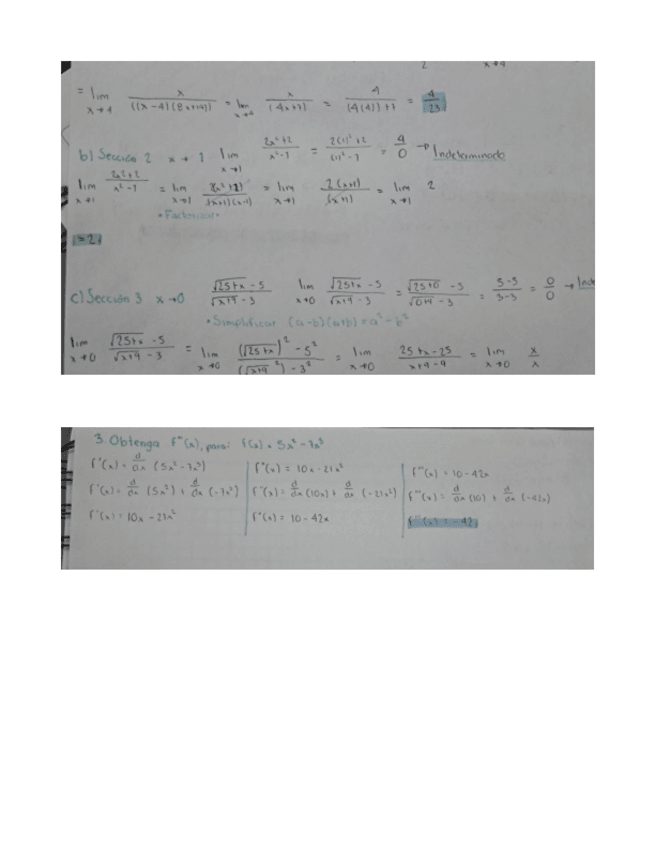 = lim x→4 x / ((x-4)(8x+14)) = lim x→4 x / (4x+7) = 4 / (4(4))+7 = 4/23
b) Sección 2 x → 1 lim x→1 2x²+2 / x²-1 = 2(1)²+2 / (1)²-1 = 4/0 → Indeterminado
lim x→1 2x²+2 / x²-1 = lim x→1 / (x+1)(x-1) = lim x→1 2(x+1) / (x+1) = lim x→1 2
• Factorizar •
= 2
c) Sección 3 x→0 √25+x - 5 / √x+9 - 3 lim x→0 √25+x - 5 / √x+9 - 3 = √25+0 - 5 / √0+9 - 3 = 5-5 / 3-3 = 0/0 →
• Simplificar (a-b)(a+b) = a² - b²
lim x→0 √25+x - 5 / √x+9 - 3 = lim x→0 (√25+x)² - 5² / (√x+9)² - 3² = lim x→0 25+x-25 / x+9-9 = lim x→0 x/x
3. Obtenga f'''(x), para: f(x) = 5x² - 7x³
f'(x) = d/dx (5x² - 7x³)
f'(x) = d/dx (5x²) + d/dx (-7x³)
f'(x) = 10x - 21x²
f''(x) = 10x - 21x²
f''(x) = d/dx (10x) + d/dx (-21x²)
f''(x) = 10 - 42x
f'''(x) = 10 - 42x
f'''(x) = d/dx (10) + d/dx (-42x)
f'''(x) = -42